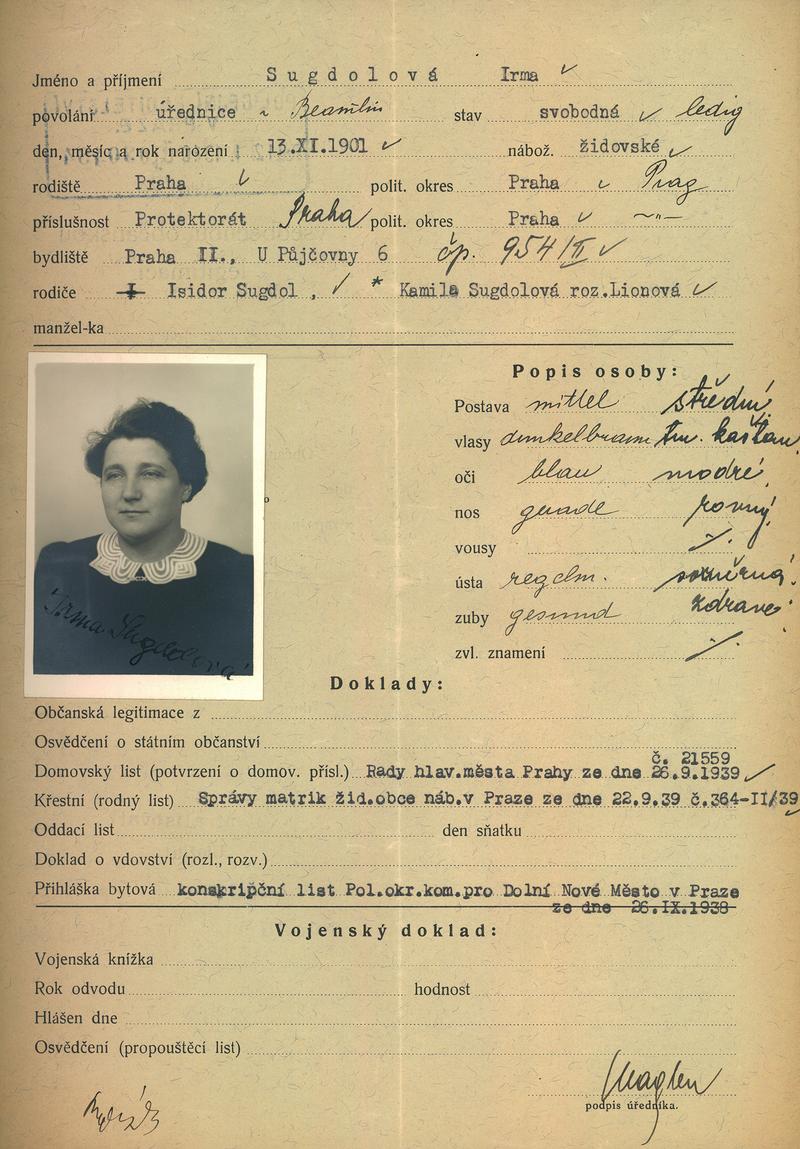 Jméno a příjmení Sugdolová Irma
povolání úřednice Beamtin stav svobodná ledig
den, měsíc a rok narození 13.XI.1901 nábož. židovské
rodiště Praha polit. okres Praha Prag
příslušnost Protektorát Praha polit. okres Praha —"—
bydliště Praha II., U Půjčovny 6 čp. 954/II
rodiče Isidor Sugdol , * Kamila Sugdolová roz.Lionová
manžel-ka
Popis osoby:
Postava mittel střední
vlasy dunkelbraun tm. kaštan
oči blau modré
nos gerade rovný
vousy ·/.
ústa regelm. souměrná
zuby gesund zdravé
zvl. znamení ·/.
Irma Sugdolová
Doklady:
Občanská legitimace z
Osvědčení o státním občanství
č. 21559
Domovský list (potvrzení o domov. přísl.) Rady hlav.města Prahy ze dne 26.9.1939
Křestní (rodný list) Správy matrik žid.obce náb.v Praze ze dne 22.9.39 č.364-II/39
Oddací list den sňatku
Doklad o vdovství (rozl., rozv.)
Přihláška bytová konskripční list Pol.okr.kom.pro Dolní Nové Město v Praze
ze dne 26.IX.1938
Vojenský doklad:
Vojenská knížka
Rok odvodu hodnost
Hlášen dne
Osvědčení (propouštěcí list)
podpis úředníka.